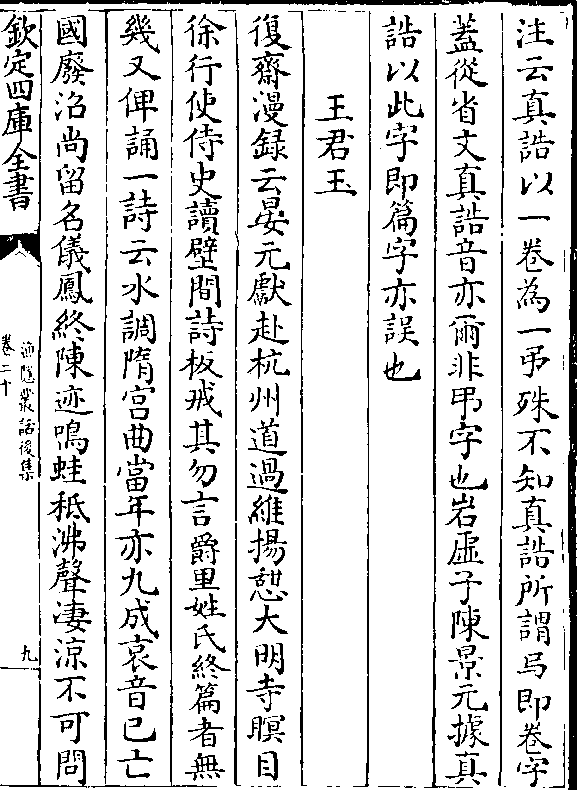 注云真誥以一卷為一弓殊不知真誥所謂弓即卷字
蓋從省文真誥音亦爾非弔字也岩虛子陳景元據真
誥以此字即篇字亦誤也
王君玉
復齋漫録云晏元獻赴杭州道過維揚憇大明寺瞑目
徐行使侍史讀壁間詩板戒其勿言爵里姓氏終篇者無
幾又俾誦一詩云水調隋宫曲當年亦九成哀音已亡
國廢沼尚留名儀鳳終陳迹鳴蛙秪沸聲凄涼不可問
欽定四庫全書
漁隱叢話後集
卷二十
九